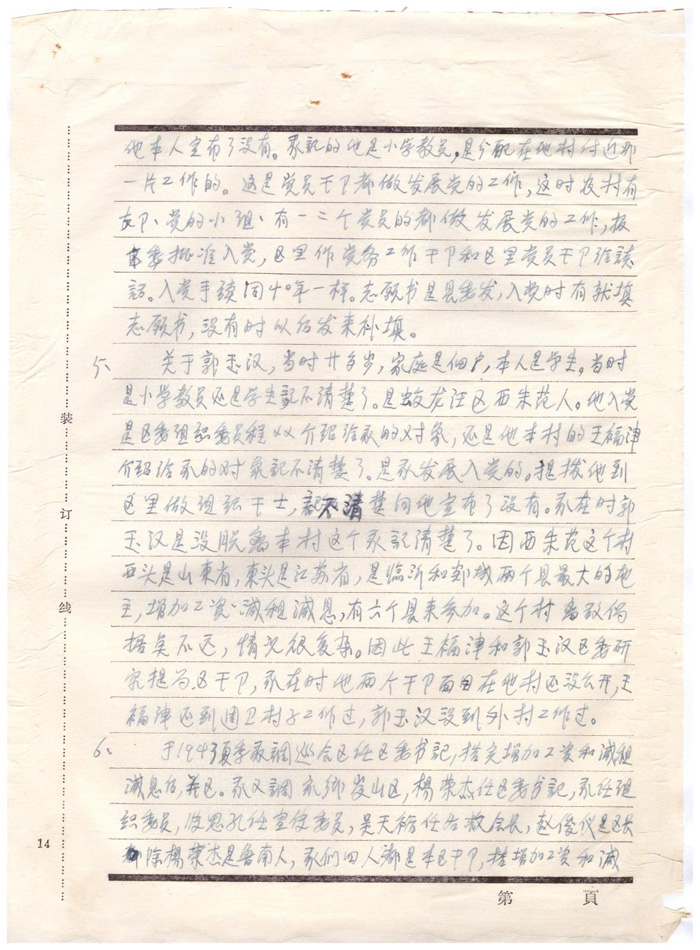 他本人宣布了没有。我記的他是小学教员,是分配在他村付近那
一片工作的。这是党员干卩都做发展党的工作,这时农村有
支卩、党的小组、有一二个党员的都做发展党的工作,报
区委批准入党,区里作党务工作干卩和区里党员干卩给談
話。入党手續同40年一样。志愿书是县委发,入党时有就填
志愿书,没有时以后发来补填。
5、 关于郭玉汉,当时廿多岁,家庭是佃户,本人是学生。当时
是小学教员还是学生記不清楚了。是蛟龙汪区西朱范人。他入党
是区委组织委员程XX介绍给我的对象,还是他本村的王福津
介绍给我的对象記不清楚了。是我发展入党的。提拔他到
区里做组织干士,記不清楚向他宣布了没有。我在时郭
玉汉是没脱离本村这个我記清楚了。因西朱范这个村
西头是山東省,東头是江苏省,是临沂和郯城两个县最大的地
主,增加工资、减租减息,有六个县来参加。这个村离敌伪
据臭不远,情况很复杂。因此王福津和郭玉汉区委研
究提为区干卩,我在时他两个干卩面目在他村还没公开,王
福津还到周卫村子工作过,郭玉汉没到外村工作过。
6、 于1943夏季我調巡会区任区委书記,搭完增加工资和减租
减息后,并区。我又調 岌山区,楊荣杰任区委书記,我任组
织委员, 思孔任宣传委员,吴天 任 救会长,赵俊仪是区长
除楊荣杰是鲁南人,我们四人都是本区干卩,搭增加工资和减
装
订
线
14
第 頁